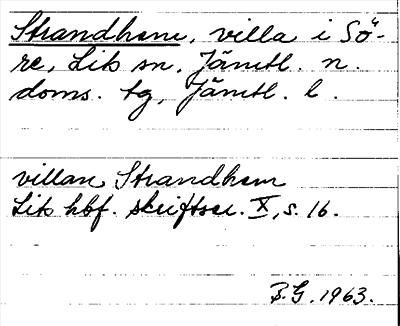 Strandhem, villa i Sö-
re, Lits sn, Jämtl. n.
doms. tg, Jämtl. l.
villan Strandhem
Lits hbf. skriftser. X, s. 16.
B.G. 1963.